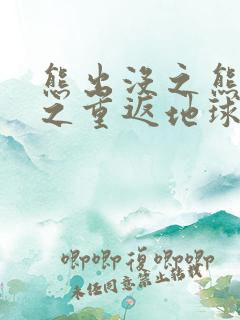 熊出没之熊
之重返地球
唧唧复唧唧
未经同意禁止转载